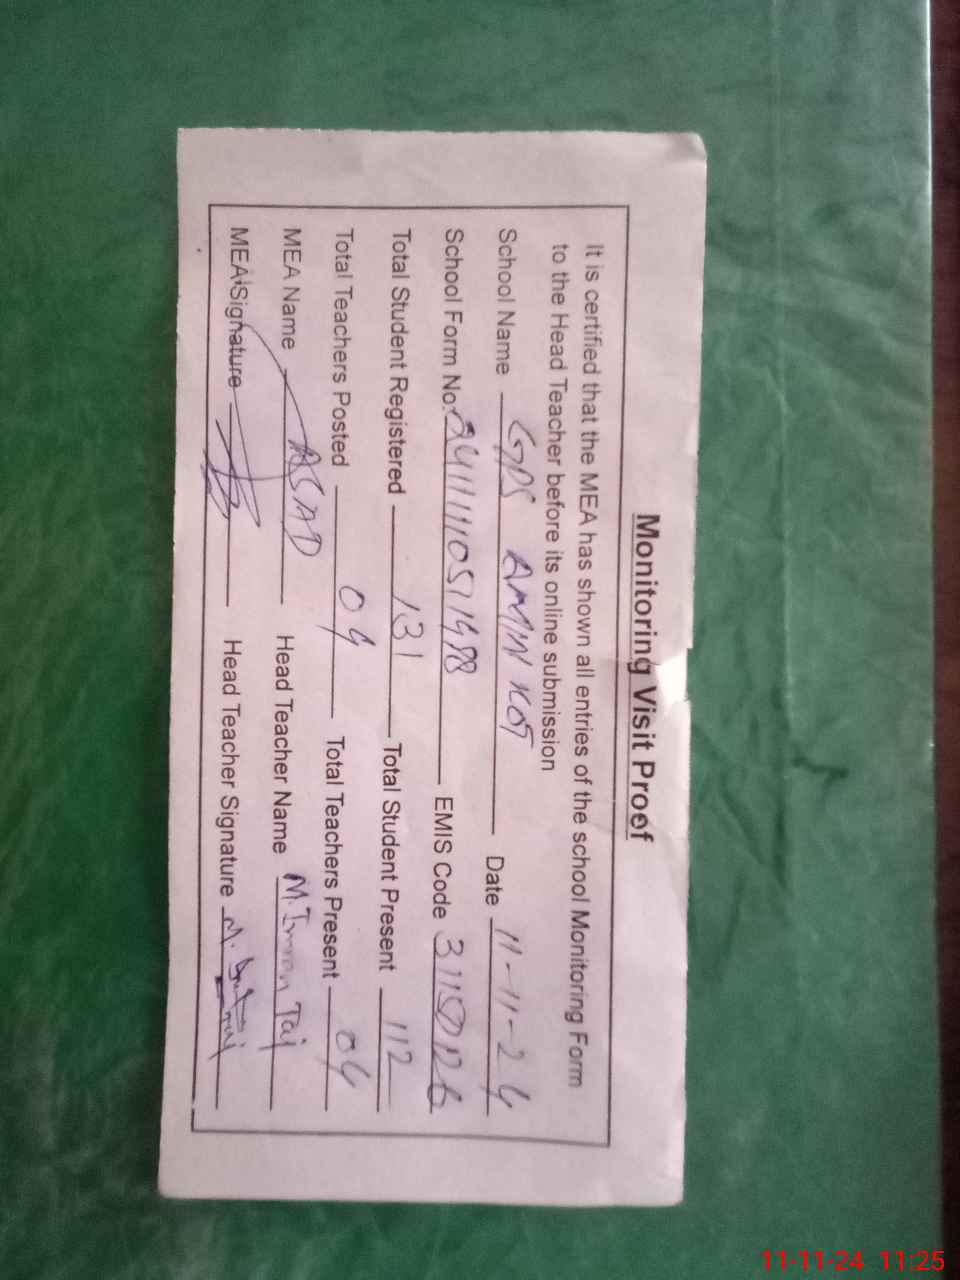 Monitoring Visit Proof
It is certified that the MEA has shown all entries of the school Monitoring Form
to the Head Teacher before its online submission
School Name GPS AMIN KOT Date 11-11-24
School Form No. 2411111051498 EMIS Code 31150126
Total Student Registered 131 Total Student Present 112
Total Teachers Posted 04 Total Teachers Present 04
MEA Name ASAD Head Teacher Name M. Imran Taj
MEA Signature Head Teacher Signature M.
11-11-24 11:25